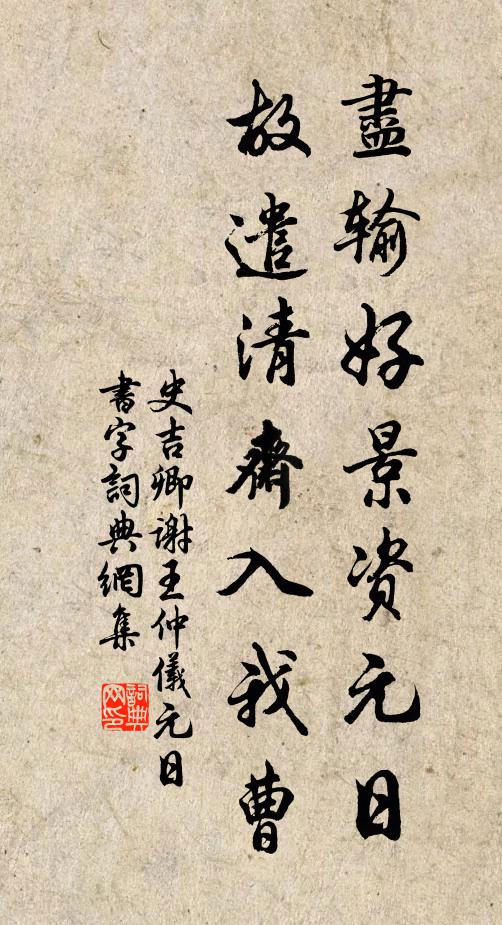 盡輸好景資元日
故遣清齋入我曹
史吉卿謝王仲儀元日
書字詞典網集
詞典网印